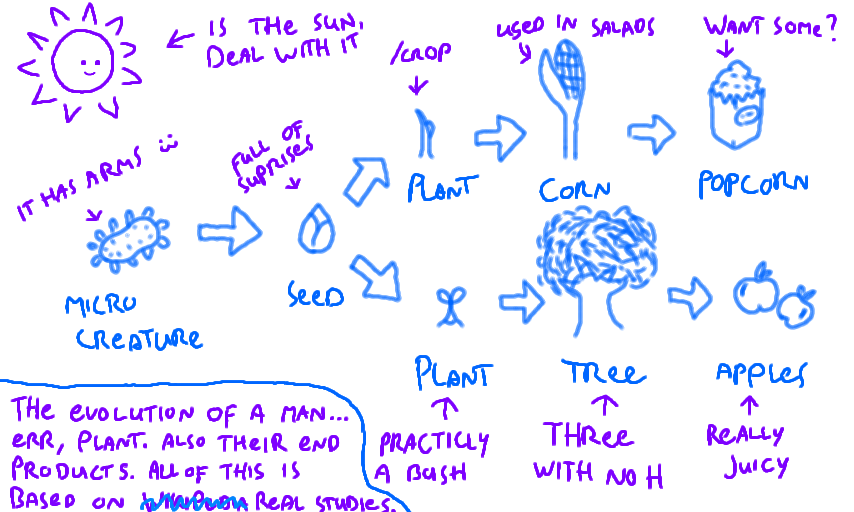 IS THE SUN,
DEAL WITH IT
/CROP
USED IN SALADS
WANT SOME?
IT HAS ARMS :)
FULL OF
SUPRISES
PLANT
CORN
POPCORN
MICRO
CREATURE
SEED
PLANT
TREE
APPLES
PRACTICLY
A BUSH
THREE
WITH NO H
REALLY
JUICY
THE EVOLUTION OF A MAN...
ERR, PLANT. ALSO THEIR END
PRODUCTS. ALL OF THIS IS
BASED ON REAL STUDIES.